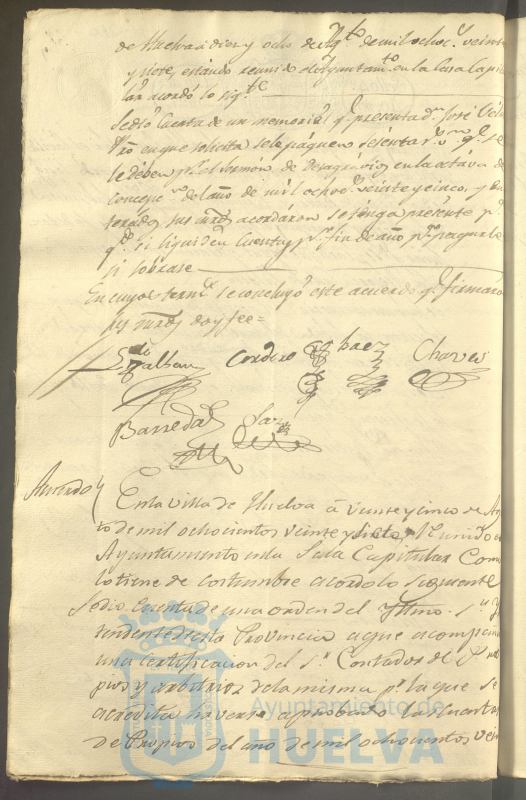 de Huelva a diez y ocho de Agto de mil ochocs veinte
y siete, estando reunido el Ayuntamto en la Casa Capitu
lar acordó lo sigte
Se dió cuenta de un memorial q presenta dn José
en que solicita se le paguen sesenta rs vn q se
le deben pr el sermón de Desagravios en la octava de
Concepcn del año de mil ochocs veinte y cinco, y en
terados sus mrds acordaron se tenga presente pa
qdo si liquiden cuentas pr fin de año pa pagarle
si sobrase
En cuyos terms se concluyó este acuerdo q firmaron
sus mrds doy fee =
Galban Cordero Baez Chaves
Barreda
Acuerdo
En la villa de Huelva á veinte y cinco de Ag
to de mil ochocientos veinte y siete, Reunido el
Ayuntamiento en la Sala Capitular Como
lo tiene de costumbre acordó lo siguiente
Se dio cuenta de una orden del Yltmo Sr Yn
tendente de esta Provincia a que acompaña
una certificacion del Sr Contador de Pro
pios y arbitrios de la misma pr la que se
acredita haverse aprobado las Cuentas
de Propios del año de mil ochocientos vein
Ayuntamiento de
HUELVA